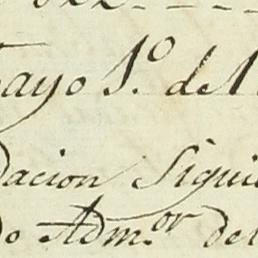 ayo 1.º de 1
dacion Sigui
do Adm.or del